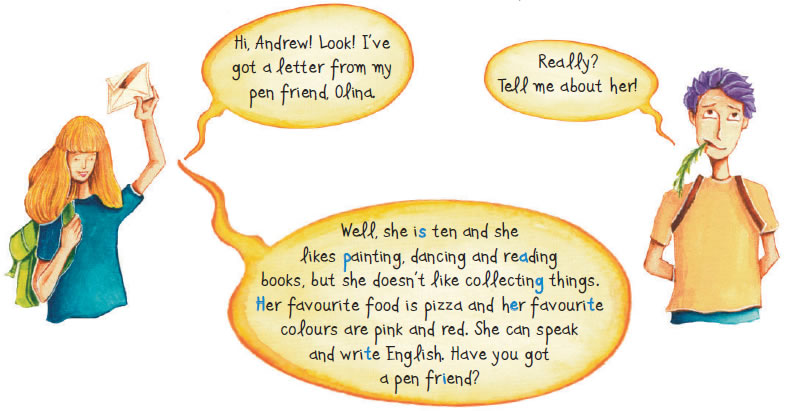 Hi, Andrew! Look! I've
got a letter from my
pen friend, Olina.
Really?
Tell me about her!
Well, she is ten and she
likes painting, dancing and reading
books, but she doesn't like collecting things.
Her favourite food is pizza and her favourite
colours are pink and red. She can speak
and write English. Have you got
a pen friend?